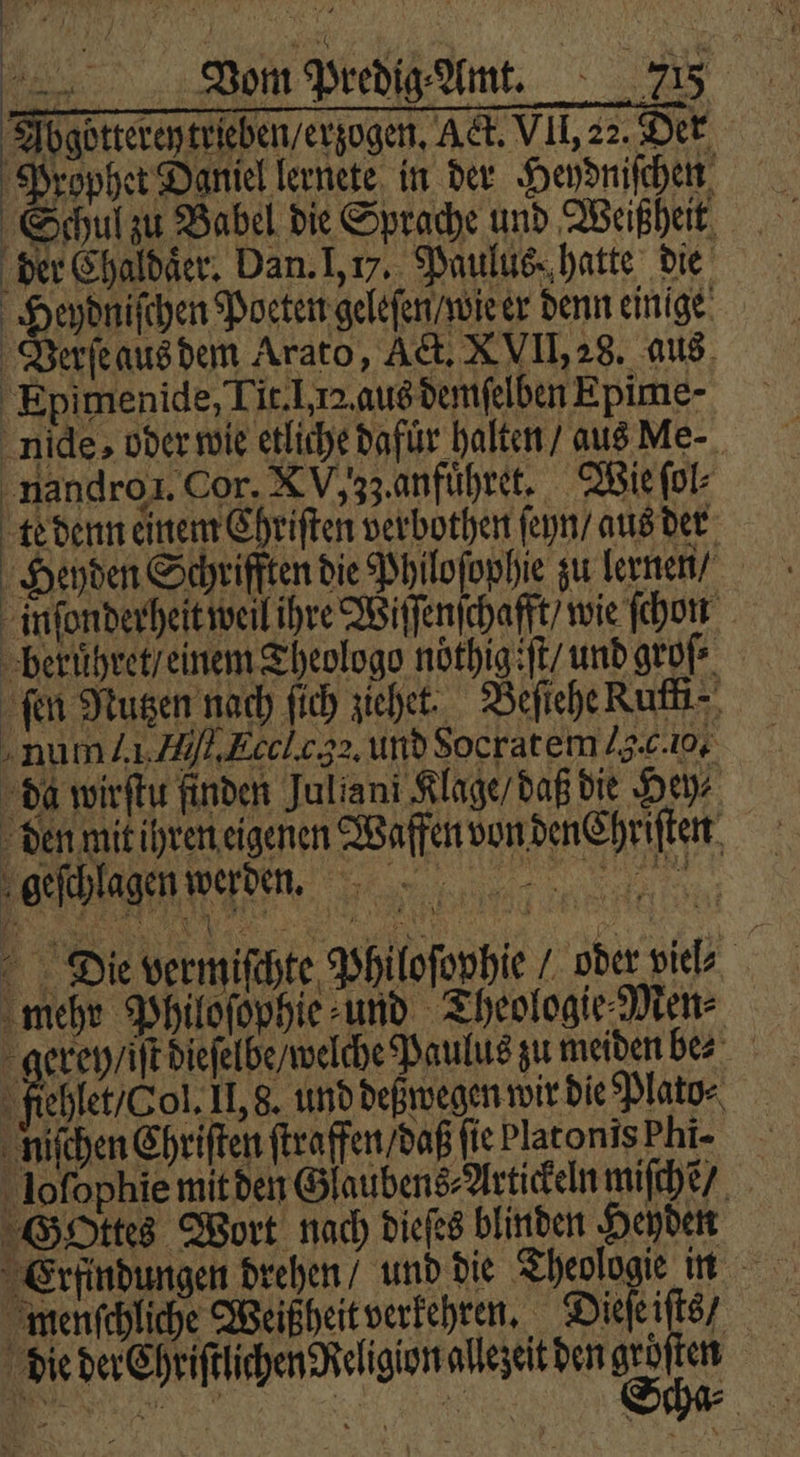 Vom Predig-Amt. 715
Abgötterey trieben/erzogen. Act. VII, 22. Der
Prophet Daniel lernete in der Heydniſchen
Schul zu Babel die Sprache und Weißheit
der Chaldåer. Dan. I, 17. Paulus hatte die
Heydniſchen Poeten geleſen/wie er denn einige
Verſe aus dem Arato, Act. XVII, 28. aus
Epimenide, Tit. I, 12. aus demſelben Epime-
nide, oder wie etliche dafůr halten / aus Me-
nandro 1. Cor. XV, 33. anfůhret. Wie ſol-
te denn einem Chriſten verbothen ſeyn/ aus der
Heyden Schrifften die Philoſophie zu lernen/
inſonderheit weil ihre Wiſſenſchafft/ wie ſchon
berůhret/einem Theologo nôthig iſt/ und groſ-
ſen Nutzen nach ſich ziehet. Beſiehe Ruffi-
num l. 1. Hiſt. Eccl. c. 32. und Socratem l. 3. c. 10.
da wirſtu finden Juliani Klage/ daß die Hey-
den mit ihren eigenen Waffen von den Chriſten
geſchlagen werden.
Die vermiſchte Philoſophie / oder viel-
mehr Philoſophie- und Theologie-Men-
gerey/iſt dieſelbe/welche Paulus zu meiden be-
fiehlet/Col. II, 8. und deßwegen wir die Plato-
niſchen Chriſten ſtraffen/daß ſie Platonis Phi-
loſophie mit den Glaubens-Artickeln miſchẽ/
GOttes Wort nach dieſes blinden Heyden
Erfindungen drehen / und die Theologie in
menſchliche Weißheit verkehren. Dieſe iſts/
die der Chriſtlichen Religion allezeit den grôſten
Scha-